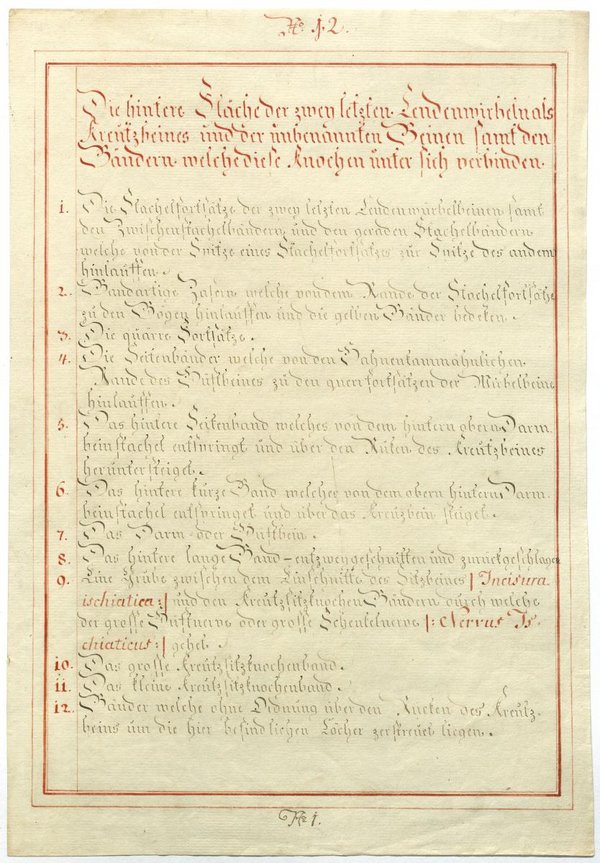 No. 12.
Die hintere Fläche der zwey letzten Lendenwirbeln als
Kreutzbeines und der unbenannten Beinen samt den
Bändern welche diese Knochen unter sich verbinden.
1. Die Stachelfortsätze der zwey letzten Lendenwürbelbeinen samt
den Zwischenstachelbändern und den geraden Stachelbändern
welche von der Spitze eines Stachelfortsatzes zur Spitze des andern
hinlauffen.
2. Bandartige Fasern welche von dem Rande der Stachelfortsätze
zu den Bögen hinlauffen und die gelben Bänder bedeken.
3. Die quäre Fortsätze.
4. Die Seitenbänder welche von den Hahnenkammähnlichen
Rande des Hüftbeines zu den querfortsätzen der Wirbelbeine
hinlauffen.
5. Das hintere Seitenband welches von dem hintern obern Darm-
beinstachel entspringt und über den Rüken des Kreutzbeines
heruntersteiget.
6. Das hintere kurze Band welches von dem obern hintern Darm-
beinstachel entspringet und über das Kreuzbein steiget.
7. Das Darm- oder Hüftbein.
8. Das hintere lange Band – entzwey geschnitten und zurückgeschlagen
9. Eine Grube zwischen dem Einschnitte des Sitzbeines |: Incisura
ischiatica :| und den Kreutzsitzknochen Bändern durch welche
der grosse Hüftnerve oder grosse Schenkelnerve |: Nervus Is-
chiaticus :| gehet.
10. Das grosse Kreutzsitzknochenband.
11. Das kleine Kreutzsitzknochenband.
12. Bänder welche ohne Ordnung über den Rucken des Kreutz-
beins um die hier befindlichen Löcher zerstreuet liegen.
No. 1.